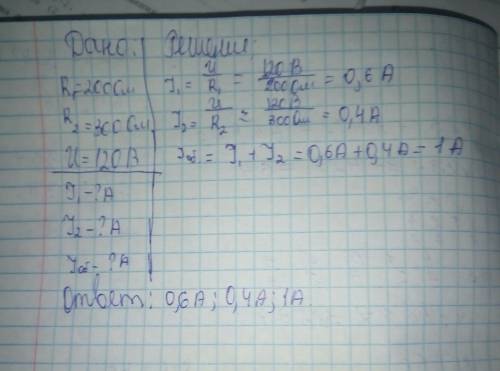 Дано: Решение:
R₁=200Ом I₁ = U/R₁ = 120В/200Ом = 0,6А
R₂=300Ом I₂ = U/R₂ = 120В/300Ом = 0,4А
U=120В Iоб. = I₁ + I₂ = 0,6А + 0,4А = 1А
I₁-?А
I₂-?А
Iоб-?А
Ответ: 0,6А; 0,4А; 1А